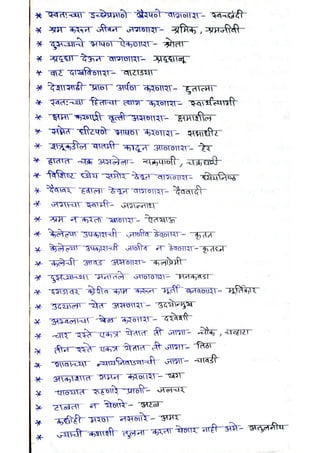 * स्वतःच्या इच्छेप्रमाणे स्वैरपणे वागणारा - स्वच्छंदी
* श्रम करून जीवन जगणारा - श्रमिक, श्रमजीवी
* दुसऱ्याचे भाषण ऐकणारा - श्रोता
* श्रद्धा ठेऊन वागणारा - श्रद्धाळू
* वाट दाखविणारा - वाटाड्या
* देशासाठी प्राण अर्पण करणारा - हुतात्मा
* स्वतःच्या हिताचा त्याग करणारा - स्वार्थत्यागी
* क्षमा करणारी वृत्ती असणारा - क्षमाशील
* सभेत धीटपणे भाषण करणारा - सभाधीट
* शत्रूकडील बातमी काढून आणणारा - हेर
* हातात चक्र असलेला - चक्रपाणी, चक्रधारी
* विशिष्ट ध्येय समोर ठेवून वागणारा - ध्येयनिष्ठ
* दैवावर हवाला ठेवून वागणारा - दैववादी
* जगाचा स्वामी - जगन्नाथ
* श्रम न करता खाणारा - ऐतखाऊ
* केलेल्या उपकाराची जाणीव ठेवणारा - कृतज्ञ
* केलेल्या उपकाराची जाणीव न ठेवणारा - कृतघ्न
* कलेची आवड असणारा - कलाप्रेमी
* दुसऱ्याच्या मनातले जाणणारा - मनकवडा
* दगडावर कोरीव काम करून मूर्ती बनवणारा - मूर्तिकार
* उदयाला येत असणारा - उदयोन्मुख
* अस्वलाचा खेळ करणारा - दरवेशी
* चार रस्ते एकत्र येतात ती जागा - चौक, चव्हाटा
* तीन रस्ते एकत्र येतात ती जागा - तिठा
* गावाच्या न्यायनिवाड्याची जागा - चावडी
* आकाशात गमन करणारा - खग
* पाण्यात राहणारे प्राणी - जलचर
* टाळता न येणारे - अटळ
* कधीही मरण नसणारे - अमर
* ज्याची कशाशी तुलना करता येणार नाही असे - अतुलनीय